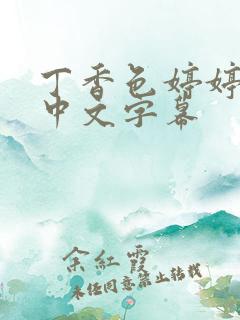 丁香色婷婷
中文字幕
余紅霞
未经同意禁止转载